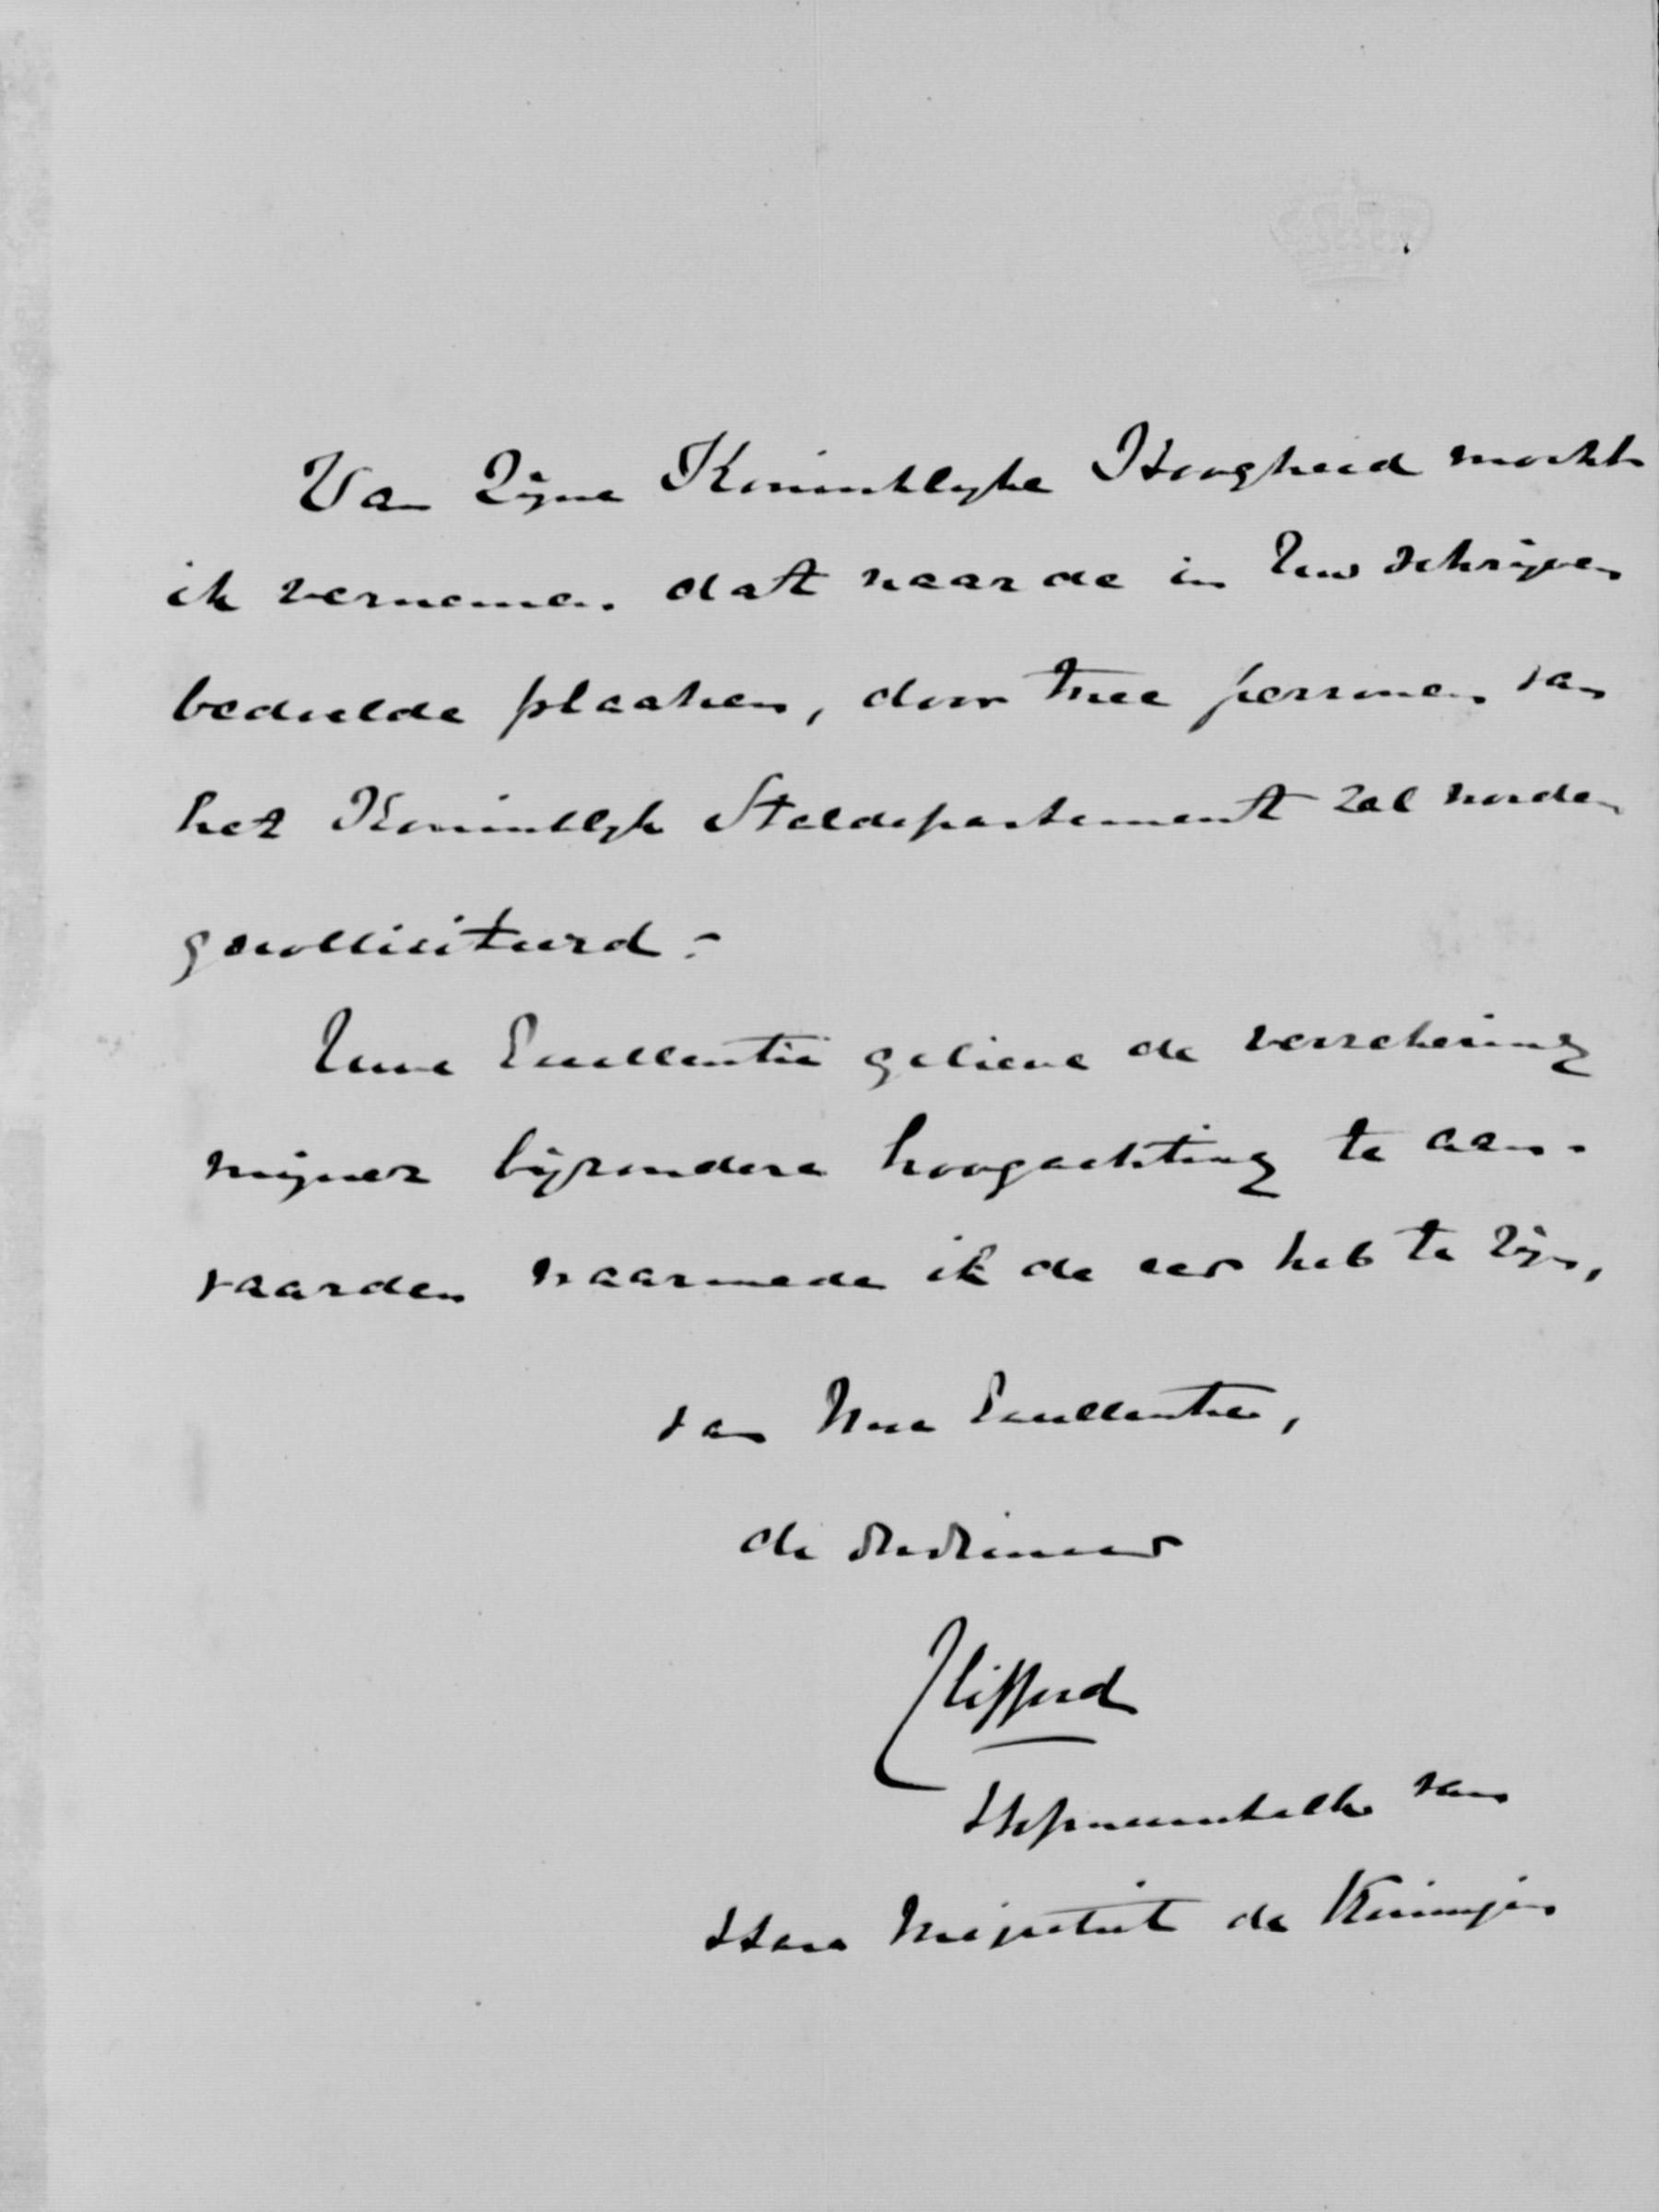 Van Zijne Koninklijke Hoogheid mocht
ik vernemen dat naar de in Uw schrijven
bedoelde plaatsen, door twee personen van
het Koninklijk Staldepartement zal worden
gesolliciteerd.
Uwe Excellentie gelieve de verzekering
mijner bijzondere hoogachting te aan-
vaarden waarmede ik de eer heb te zijn,
van Uwe Excellentie,
de dw dienaar
Clifford
Hofmaarschalk van
Hare Majesteit de Koningin